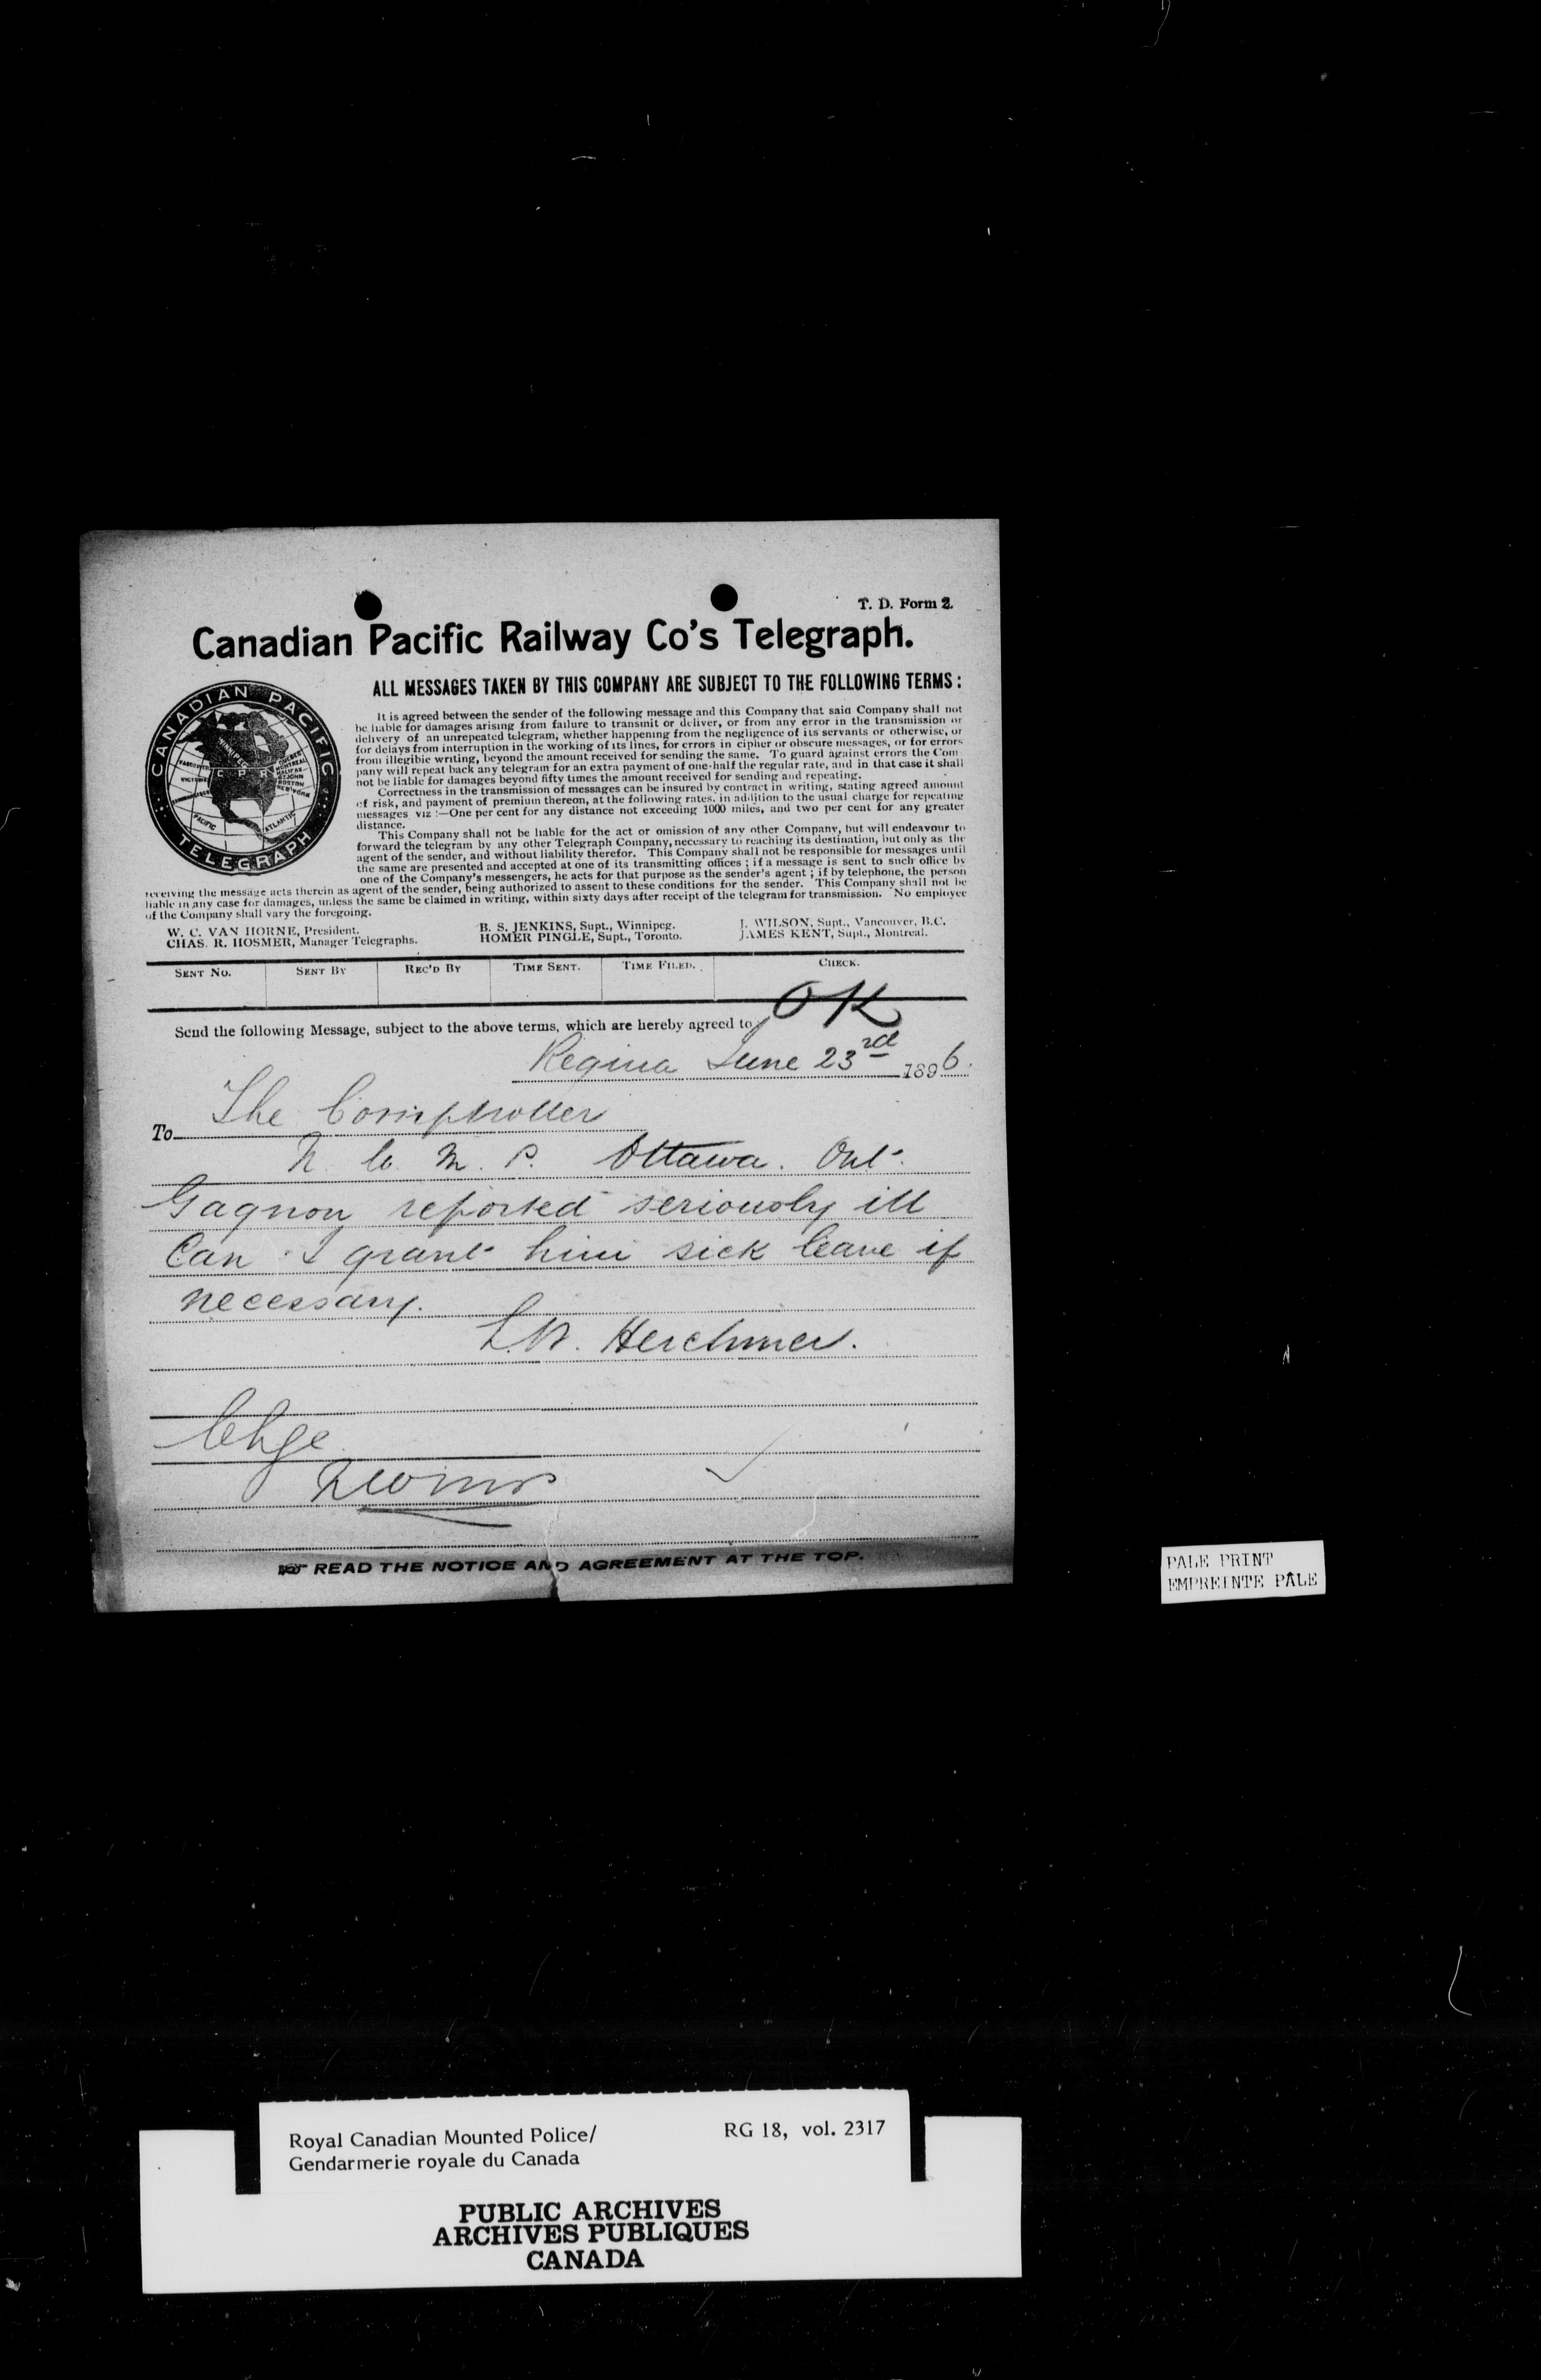 T. D. Form 2.
Canadian Pacific Railway Co's Telegraph.
ALL MESSAGES TAKEN BY THIS COMPANY ARE SUBJECT TO THE FOLLOWING TERMS:
CANADIAN PACIFIC
TELEGRAPH
CPR
PACIFIC
ATLANTIC
It is agreed between the sender of the following message and this Company that said Company shall not
be liable for damages arising from failure to transmit or deliver, or from any error in the transmission or
delivery of an unrepeated telegram, whether happening from the negligence of its servants or otherwise, or
for delays from interruption in the working of its lines, for errors in cipher or obscure messages, or for errors
from illegible writing, beyond the amount received for sending the same. To guard against errors the Com
pany will repeat back any telegram for an extra payment of one-half the regular rate, and in that case it shall
not be liable for damages beyond fifty times the amount received for sending and repeating.
Correctness in the transmission of messages can be insured by contract in writing, stating agreed amount
of risk, and payment of premium thereon, at the following rates, in addition to the usual charge for repeating
messages viz :—One per cent for any distance not exceeding 1000 miles, and two per cent for any greater
distance.
This Company shall not be liable for the act or omission of any other Company, but will endeavour to
forward the telegram by any other Telegraph Company, necessary to reaching its destination, but only as the
agent of the sender, and without liability therefor. This Company shall not be responsible for messages until
the same are presented and accepted at one of its transmitting offices ; if a message is sent to such office by
one of the Company's messengers, he acts for that purpose as the sender's agent ; if by telephone, the person
receiving the message acts therein as agent of the sender, being authorized to assent to these conditions for the sender. This Company shall not be
liable in any case for damages, unless the same be claimed in writing, within sixty days after receipt of the telegram for transmission. No employee
of the Company shall vary the foregoing.
W. C. VAN HORNE, President. B. S. JENKINS, Supt., Winnipeg. J. WILSON, Supt., Vancouver, B.C.
CHAS. R. HOSMER, Manager Telegraphs. HOMER PINGLE, Supt., Toronto. JAMES KENT, Supt., Montreal.
SENT NO. SENT BY REC'D BY TIME SENT. TIME FILED. CHECK.
OK
Send the following Message, subject to the above terms, which are hereby agreed to
Regina June 23rd 1896.
To The Comptroller
N. W. M. P. Ottawa. Ont.
Gagnon reported seriously ill
Can I grant him sick leave if
necessary.
L.W. Herchmer.
Chge
NWMP
READ THE NOTICE AND AGREEMENT AT THE TOP.
PALE PRINT
EMPREINTE PÂLE
Royal Canadian Mounted Police/ RG 18, vol. 2317
Gendarmerie royale du Canada
PUBLIC ARCHIVES
ARCHIVES PUBLIQUES
CANADA